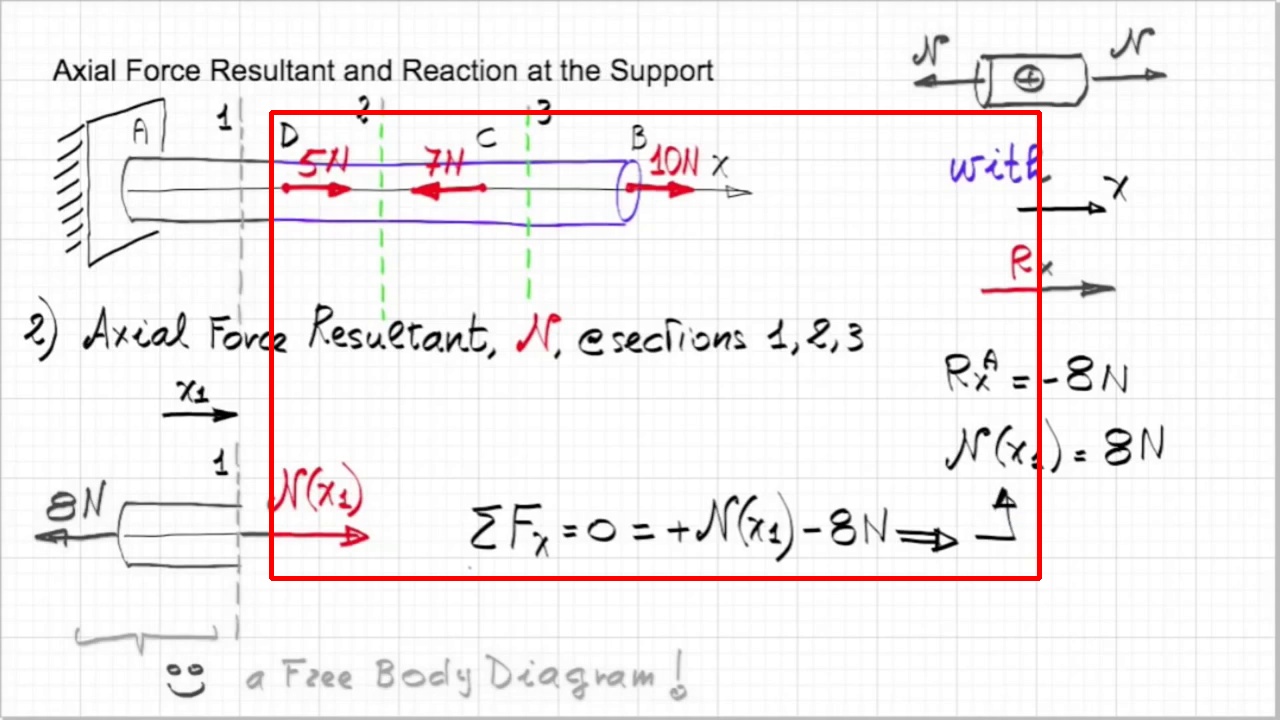 Axial Force Resultant and Reaction at the Support
N N
+
1 2 3
A D C B
5N 7N 10N x
with
x
Rx
2) Axial Force Resultant, N, @sections 1,2,3
x1
RxA = -8N
1
N(x1) = 8N
8N N(x1)
ΣFx = 0 = +N(x1) - 8N ⇒
a Free Body Diagram!